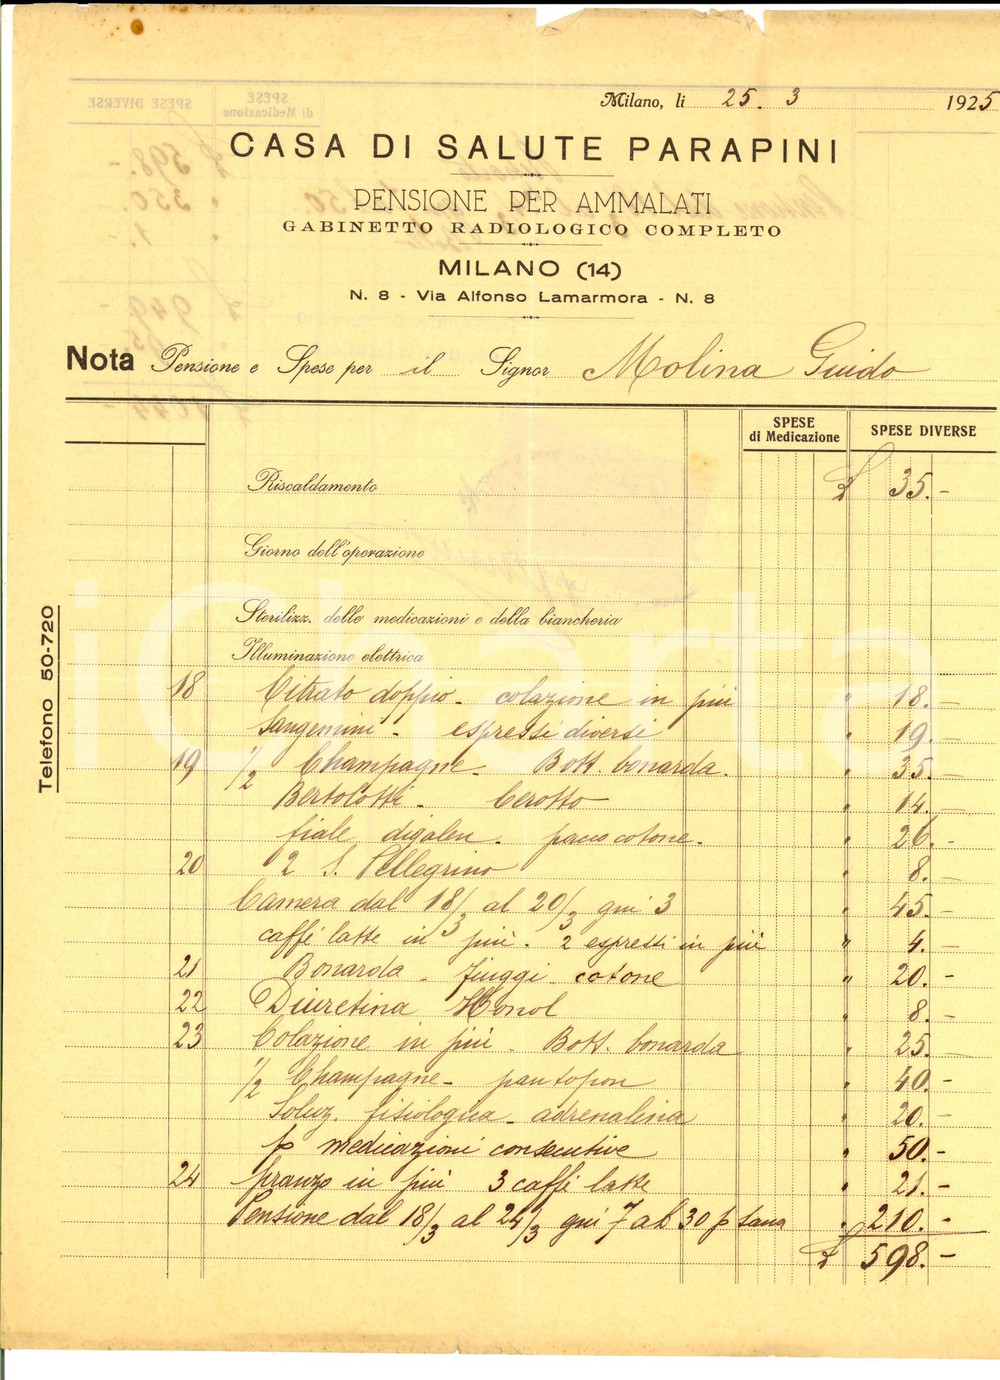 Milano, li 25. 3 1925
CASA DI SALUTE PARAPINI
PENSIONE PER AMMALATI
GABINETTO RADIOLOGICO COMPLETO
MILANO (14)
N. 8 - Via Alfonso Lamarmora - N. 8
Nota Pensione e Spese per il Signor Molina Guido
SPESE di Medicazione SPESE DIVERSE
Riscaldamento £ 35.-
Giorno dell'operazione
Sterilizz. delle medicazioni e della biancheria
Illuminazione elettrica
18 Citrato doppio - colazione in più " 18.-
Sangemini - espressi diversi " 19.-
19 1/2 Champagne - Bott. bonarda. " 35.-
Bertolotti - Cerotto " 14.-
fiale digalen - pacco cotone - " 26.-
20 2 S. Pellegrino " 8.-
Camera dal 18/3 al 20/3 gni 3 " 45.-
caffè latte in più - 2 espressi in più " 4.-
21 Bonarda - fiuggi - cotone " 20.-
22 Diuretina Honol " 8.-
23 Colazione in più - Bott. bonarda " 25.-
1/2 Champagne - pantopon " 40.-
Soluz. fisiologica - adrenalina " 20.-
p medicazioni consecutive " 50.-
24 pranzo in più 3 caffè latte " 21.-
Pensione dal 18/3 al 24/3 gni 7 a L 30 p " 210.-
£ 598.-
Telefono 50-720